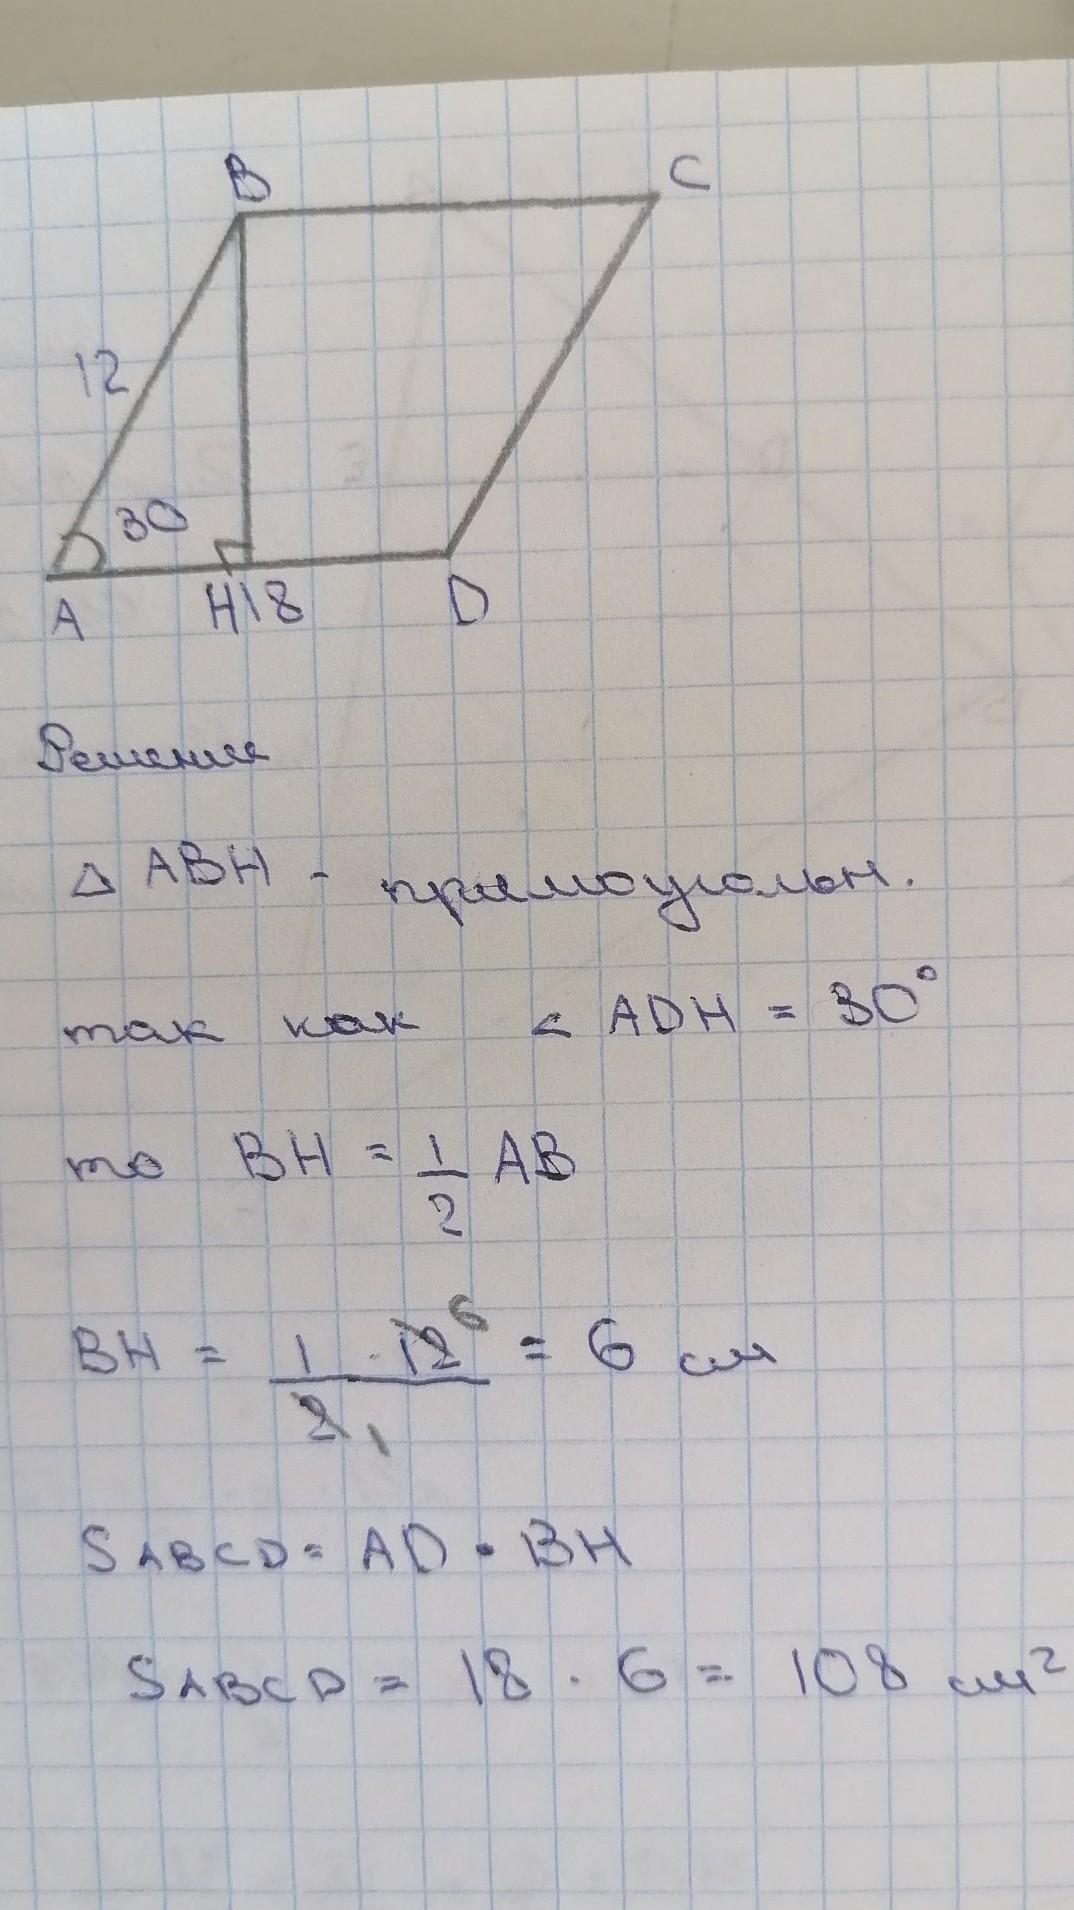 B C
12
30
A H18 D
Решение
Δ ABH - прямоугольн.
так как < ADH = 30°
то BH = 1/2 AB
BH = 1 · 12 6 / 2 1 = 6 см
SABCD = AD · BH
SABCD = 18 · 6 = 108 см²